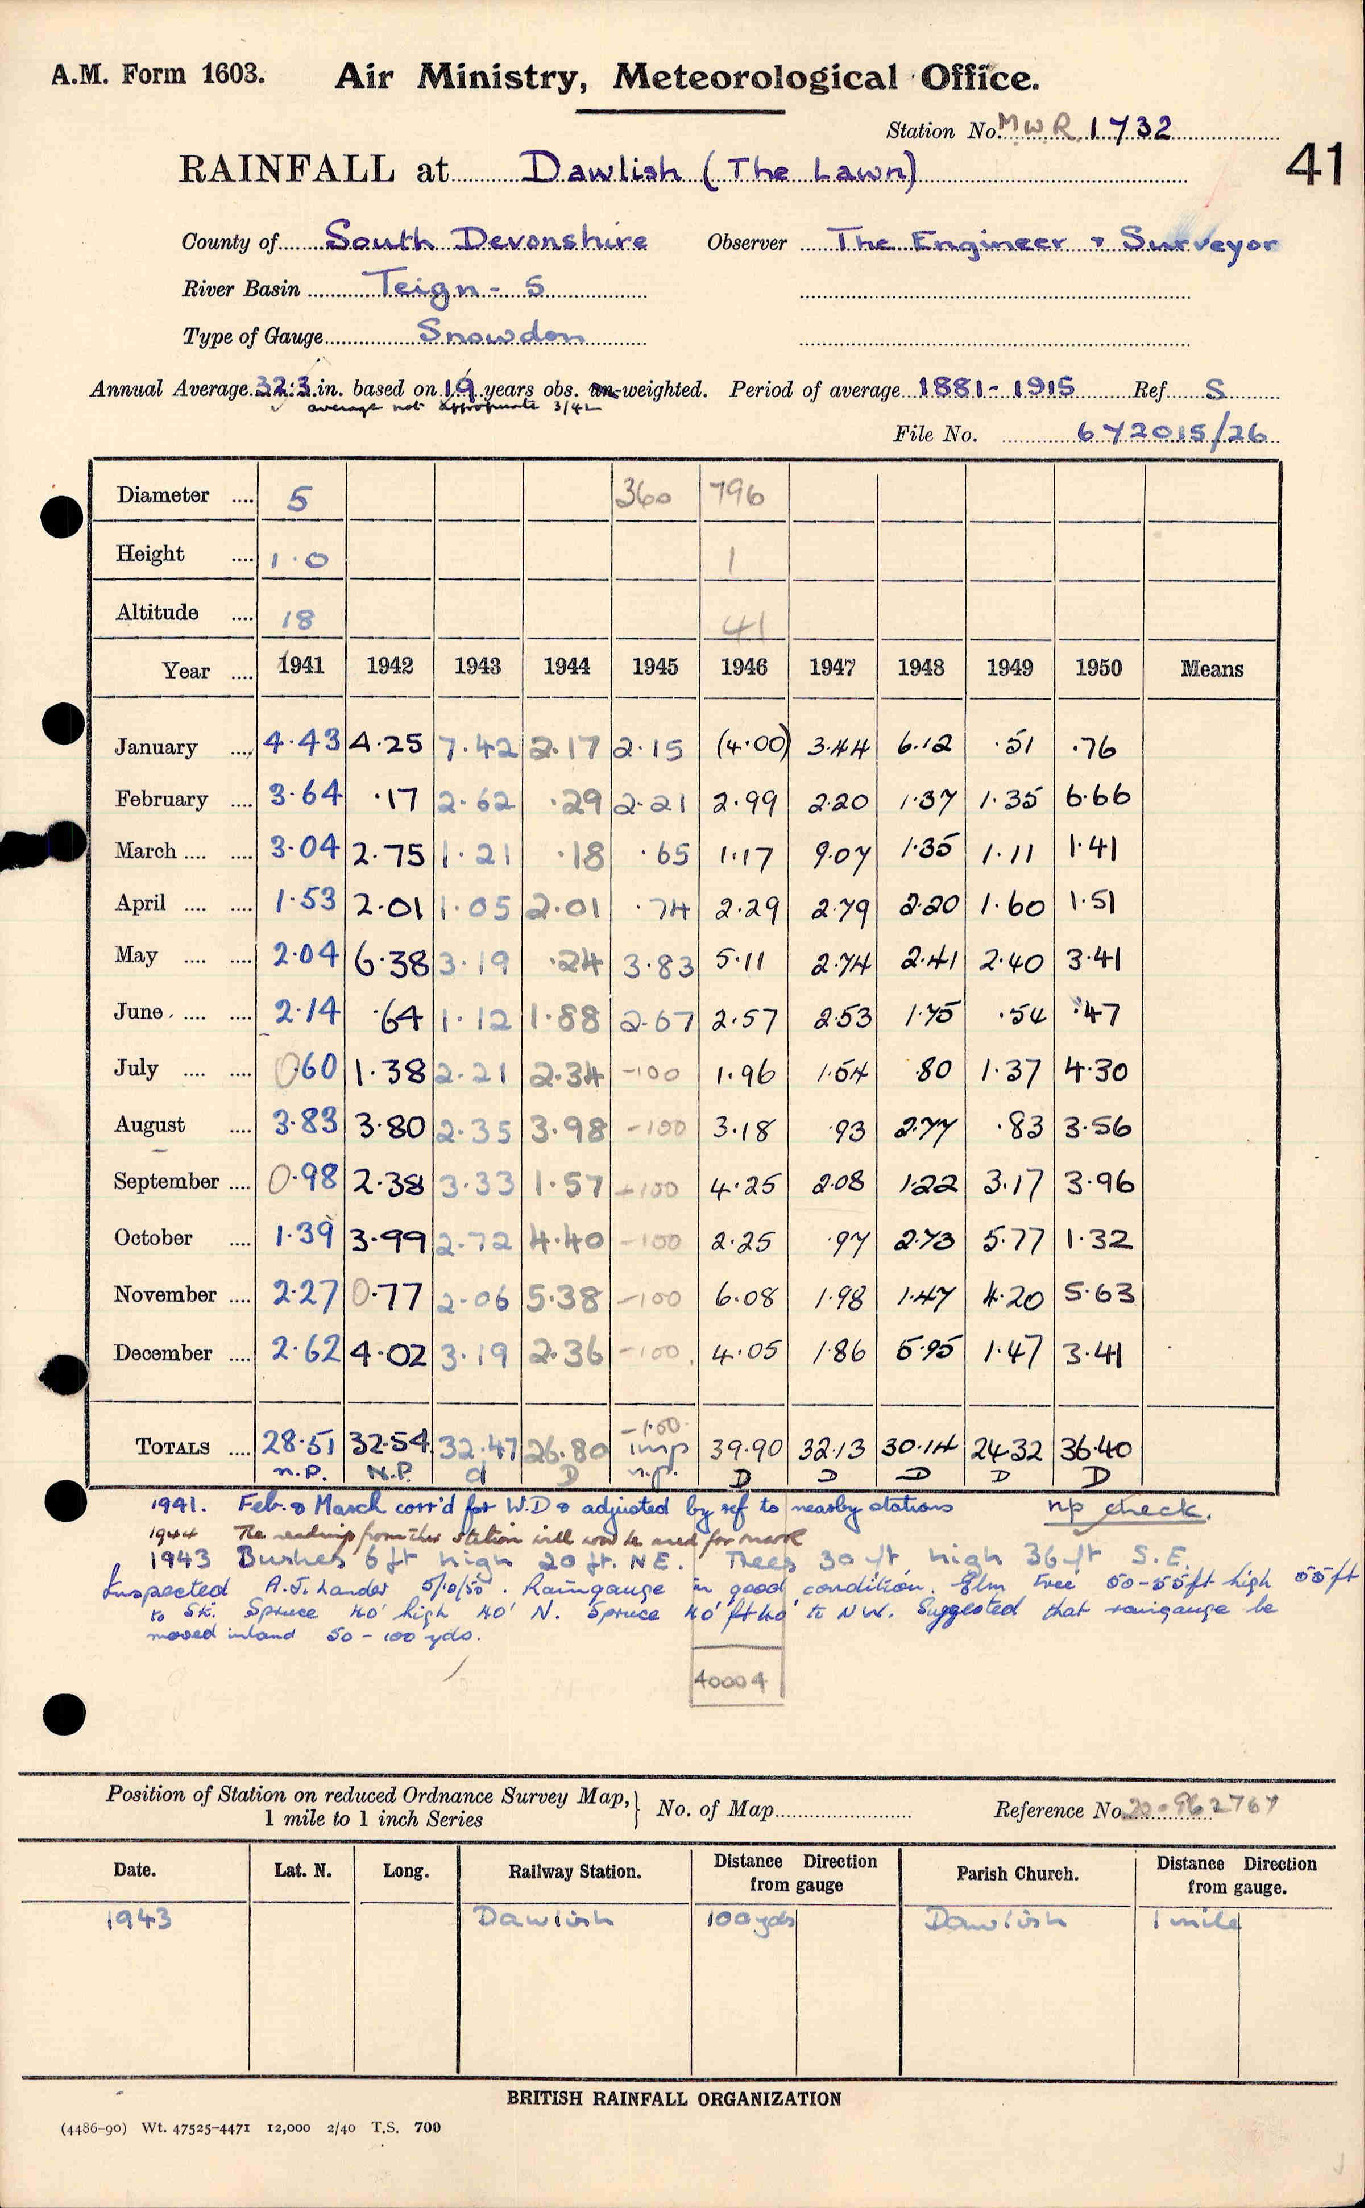 A.M. Form 1603. Air Ministry, Meteorological Office.
Station No. MWR 1732
41
RAINFALL at Dawlish (The Lawn)
County of South Devonshire Observer The Engineer & Surveyor
River Basin Teign - 5
Type of Gauge Snowdon
Annual Average 32.3 in. based on 19 years obs. un-weighted. Period of average 1881-1915 Ref. S
average not approximate 3/42
File No. 672015/26
Diameter .... 5 360 796
Height .... 1.0 1
Altitude .... 18 41
Year .... 1941 1942 1943 1944 1945 1946 1947 1948 1949 1950 Means
January .... 4.43 4.25 7.42 2.17 2.15 (4.00) 3.44 6.12 .51 .76
February .... 3.64 .17 2.62 .29 2.21 2.99 2.20 1.37 1.35 6.66
March .... .... 3.04 2.75 1.21 .18 .65 1.17 9.07 1.35 1.11 1.41
April .... .... 1.53 2.01 1.05 2.01 .74 2.29 2.79 2.20 1.60 1.51
May .... .... 2.04 6.38 3.19 .24 3.83 5.11 2.74 2.41 2.40 3.41
June .... .... 2.14 .64 1.12 1.88 2.67 2.57 2.53 1.75 .54 .47
July .... .... 060 1.38 2.21 2.34 -100 1.96 1.54 .80 1.37 4.30
August .... 3.83 3.80 2.35 3.98 -100 3.18 .93 2.77 .83 3.56
September .... 0.98 2.38 3.33 1.57 -100 4.25 2.08 1.22 3.17 3.96
October .... 1.39 3.99 2.72 4.40 -100 2.25 .97 2.73 5.77 1.32
November .... 2.27 0.77 2.06 5.38 -100 6.08 1.98 1.47 4.20 5.63
December .... 2.62 4.02 3.19 2.36 -100 4.05 1.86 5.95 1.47 3.41
-1.00
TOTALS .... 28.51 32.54 32.47 26.80 imp 39.90 32.13 30.14 24.32 36.40
n.p. N.P. d D n.p. D D D D D
1941. Feb. & March corr'd for W.D & adjusted by ref to nearby stations np check.
1944 The readings from this station will not be used for
1943 Bushes 6 ft high 20 ft. NE. Trees 30 ft high 36 ft S.E.
Inspected A.J. Lander 5/10/50. Raingauge in good condition. Elm tree 50-55ft high 55ft
to SE. Spruce 40' high 40' N. Spruce 40' ft 40' to NW. Suggested that raingauge be
moved inland 50 - 100 yds.
40004
Position of Station on reduced Ordnance Survey Map, 1 mile to 1 inch Series } No. of Map Reference No. 20.962767
Date. Lat. N. Long. Railway Station. Distance Direction from gauge Parish Church. Distance Direction from gauge.
1943 Dawlish 100 yds Dawlish 1 mile
BRITISH RAINFALL ORGANIZATION
(4486-90) Wt. 47525-4471 12,000 2/40 T.S. 700